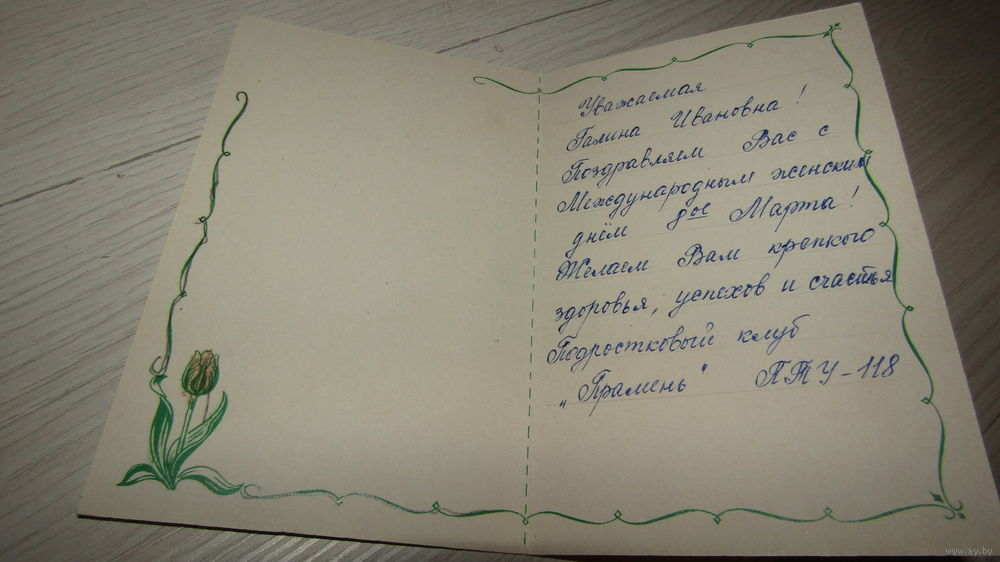 Уважаемая
Галина Ивановна!
Поздравляем Вас с
Международным женским
днём 8ое Марта!
Желаем Вам крепкого
здоровья, успехов и счастья
Подростковый клуб
„Прамень" ПТУ-118
www.ay.by